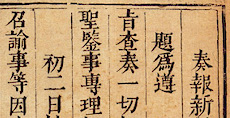 奏報新
題爲遵
旨查奏一切
聖鑒事專理
初二日
召諭事等因